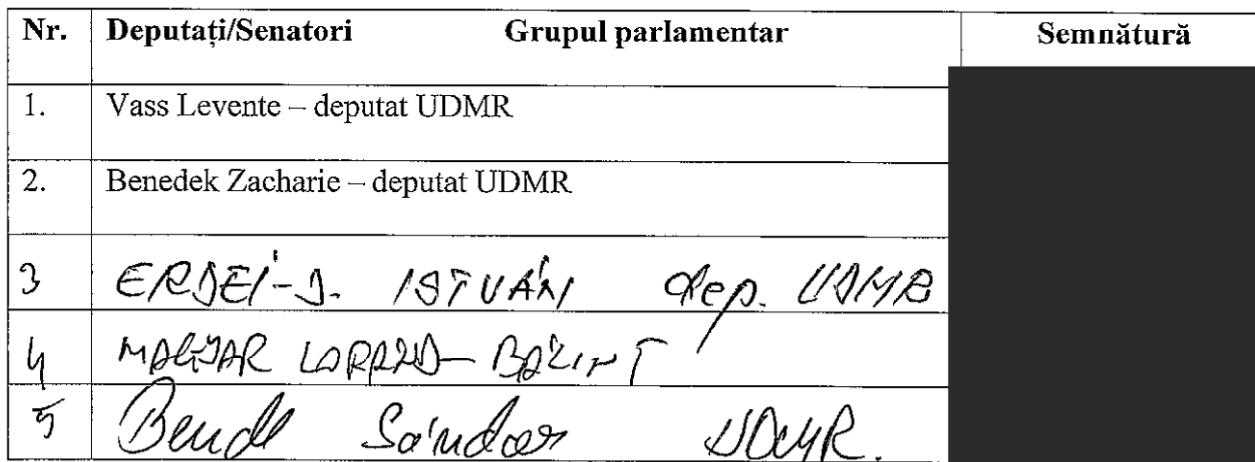 Nr. Deputați/Senatori Grupul parlamentar Semnătură
1. Vass Levente – deputat UDMR
2. Benedek Zacharie – deputat UDMR
3 ERDEI-D. ISTVÁN dep. UDMR
4 MAGYAR LORÁND-BÁLINT
5 Bende Sándor UDMR.